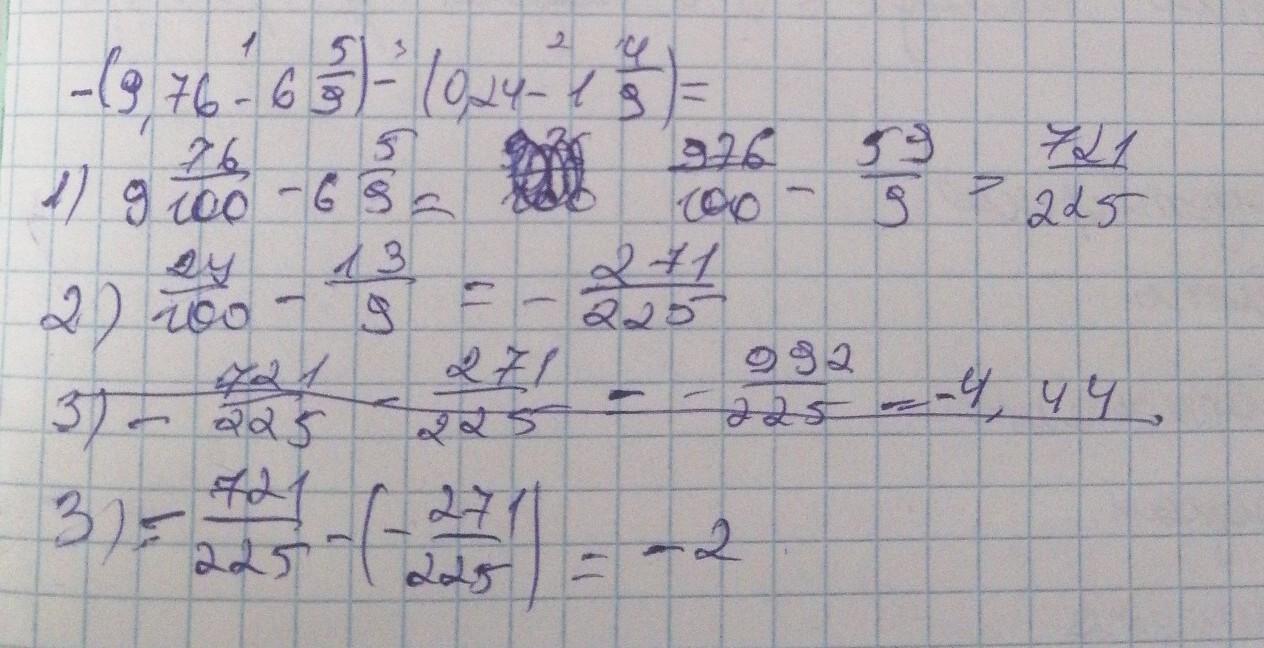 -(9,76 - 6 5/9) - (0,24 - 1 4/9) =
1) 9 76/100 - 6 5/9 = 976/100 - 59/9 = 721/225
2) 24/100 - 13/9 = - 271/225
3) - 721/225 - 271/225 = - 992/225 = -4,44
3) = - 721/225 - (- 271/225) = -2